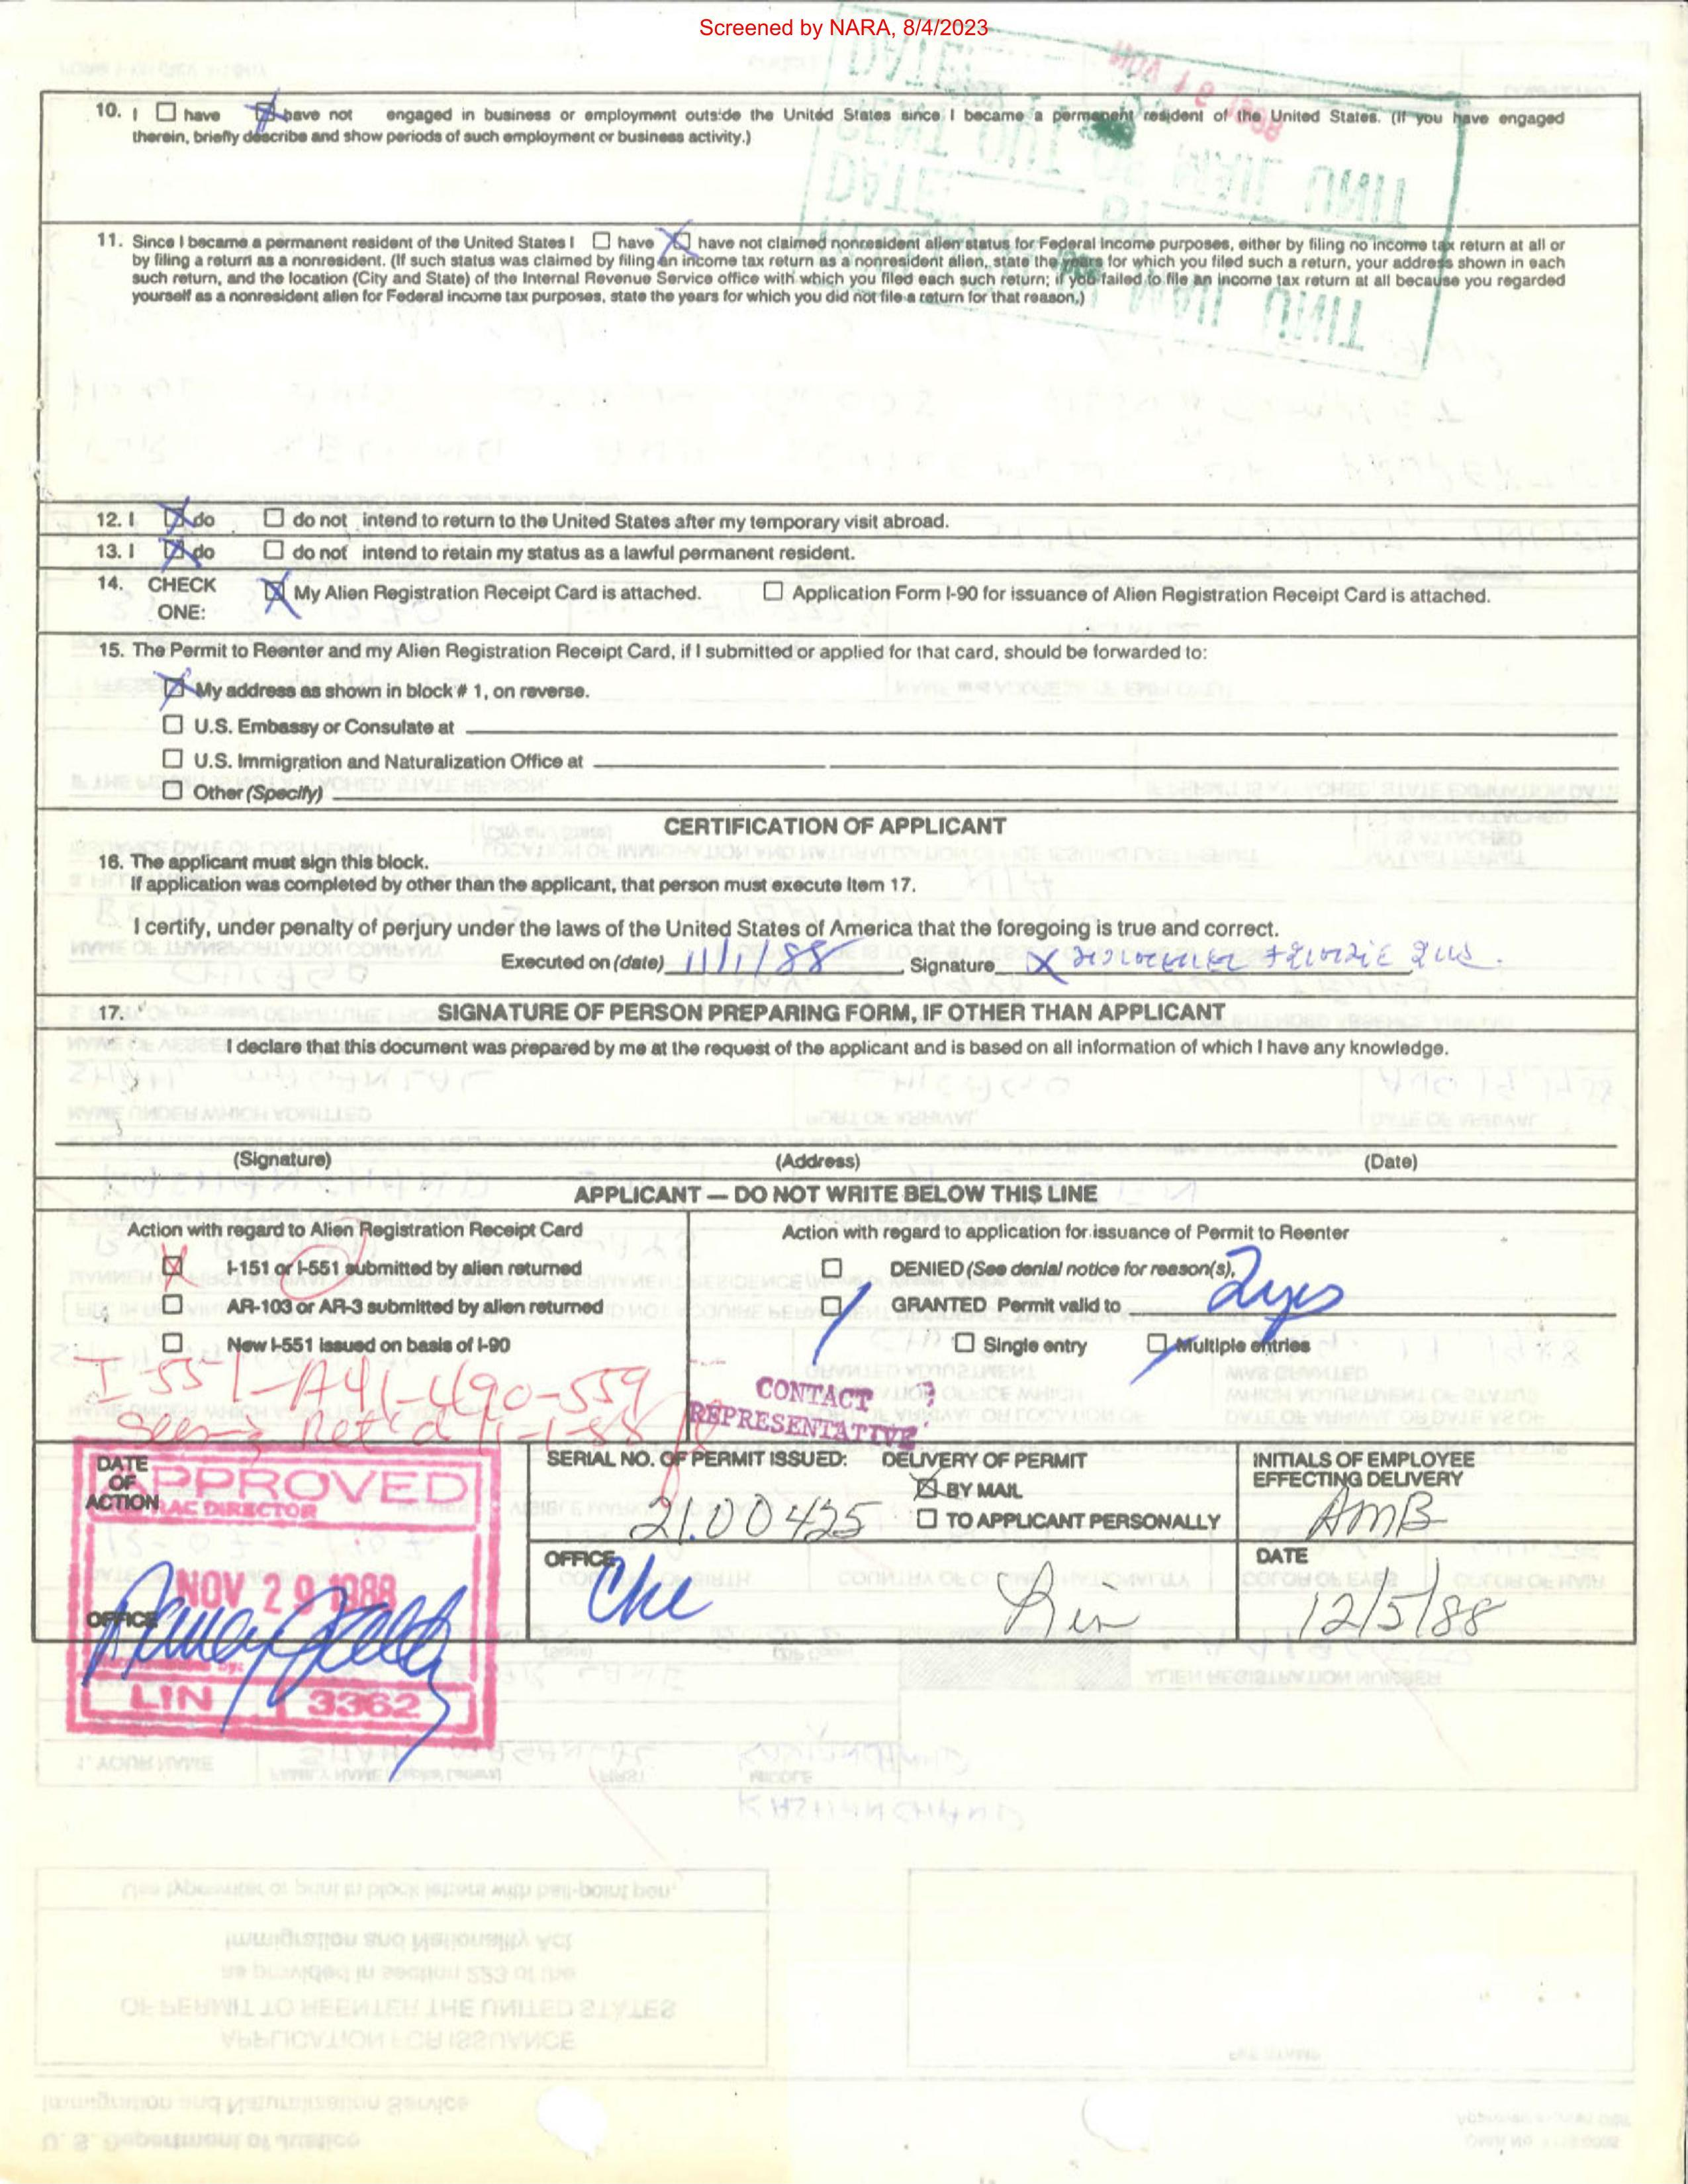 Screened by NARA, 8/4/2023
10. I ☐ have ☒ have not engaged in business or employment outside the United States since I became a permanent resident of the United States. (If you have engaged
therein, briefly describe and show periods of such employment or business activity.)
11. Since I became a permanent resident of the United States I ☐ have ☒ have not claimed nonresident alien status for Federal Income purposes, either by filing no income tax return at all or
by filing a return as a nonresident. (If such status was claimed by filing an income tax return as a nonresident alien, state the years for which you filed such a return, your address shown in each
such return, and the location (City and State) of the Internal Revenue Service office with which you filed each such return; if you failed to file an income tax return at all because you regarded
yourself as a nonresident alien for Federal income tax purposes, state the years for which you did not file a return for that reason.)
12. I ☒ do ☐ do not intend to return to the United States after my temporary visit abroad.
13. I ☒ do ☐ do not intend to retain my status as a lawful permanent resident.
14. CHECK ONE: ☒ My Alien Registration Receipt Card is attached. ☐ Application Form I-90 for issuance of Alien Registration Receipt Card is attached.
15. The Permit to Reenter and my Alien Registration Receipt Card, if I submitted or applied for that card, should be forwarded to:
☒ My address as shown in block # 1, on reverse.
☐ U.S. Embassy or Consulate at
☐ U.S. Immigration and Naturalization Office at
☐ Other (Specify)
CERTIFICATION OF APPLICANT
16. The applicant must sign this block.
If application was completed by other than the applicant, that person must execute Item 17.
I certify, under penalty of perjury under the laws of the United States of America that the foregoing is true and correct.
Executed on (date) 11/1/88 Signature X
17. SIGNATURE OF PERSON PREPARING FORM, IF OTHER THAN APPLICANT
I declare that this document was prepared by me at the request of the applicant and is based on all information of which I have any knowledge.
(Signature) (Address) (Date)
APPLICANT — DO NOT WRITE BELOW THIS LINE
Action with regard to Alien Registration Receipt Card
☒ I-151 or I-551 submitted by alien returned
☐ AR-103 or AR-3 submitted by alien returned
☐ New I-551 issued on basis of I-90
I-551-A41-490-559
Seen & Ret'd 11-1-88
Action with regard to application for issuance of Permit to Reenter
☐ DENIED (See denial notice for reason(s),
☒ GRANTED Permit valid to 2yrs
☐ Single entry ☒ Multiple entries
CONTACT
REPRESENTATIVE
DATE OF ACTION
APPROVED
RAC DIRECTOR
NOV 29 1988
OFFICE
by:
LIN 3362
SERIAL NO. OF PERMIT ISSUED: 2100425
DELIVERY OF PERMIT
☒ BY MAIL
☐ TO APPLICANT PERSONALLY
INITIALS OF EMPLOYEE
EFFECTING DELIVERY
AMB
OFFICE
DATE
12/5/88